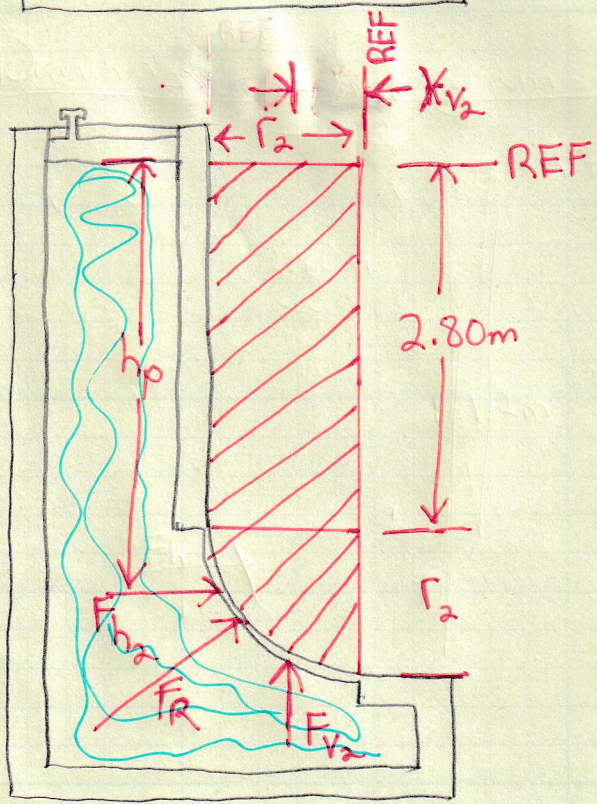 REF
REF
X_v₂
r₂
REF
2.80m
h_p
r₂
F_h₂
F_R
F_v₂